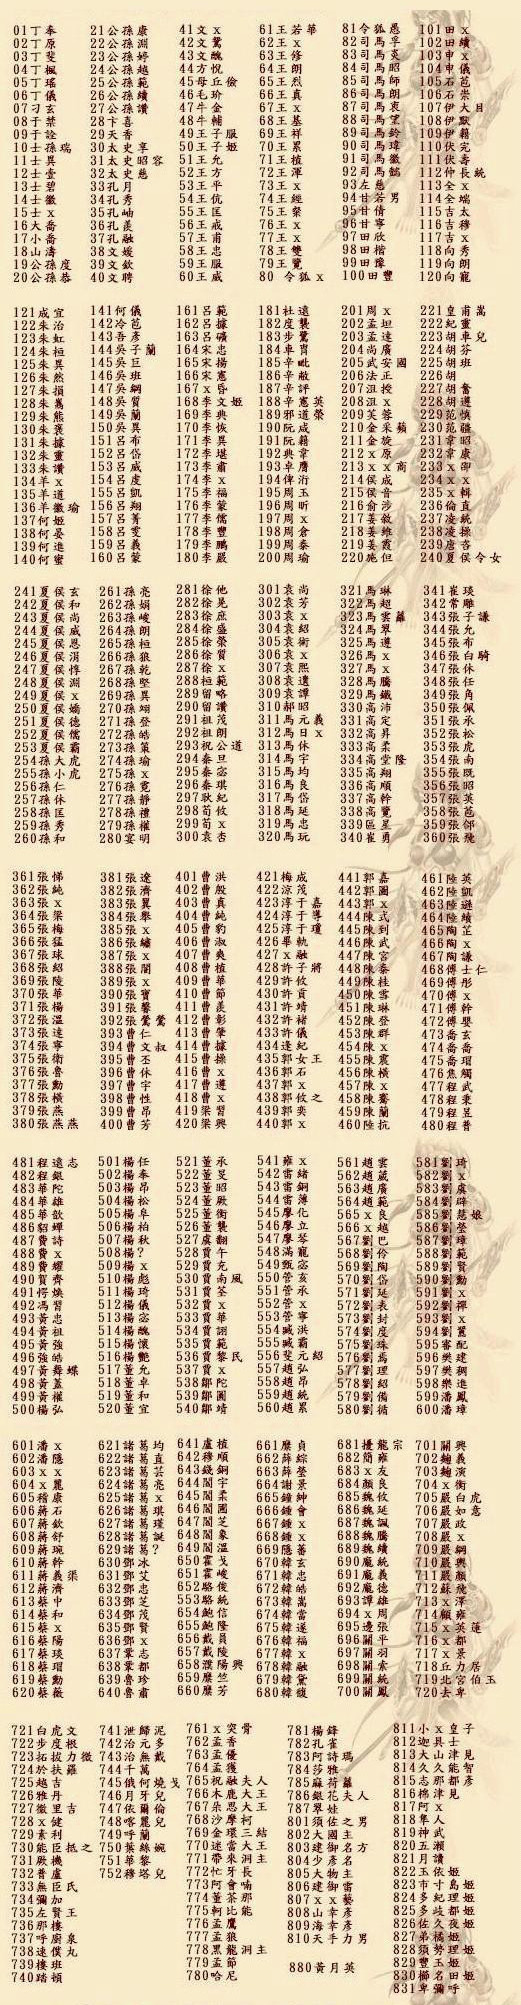 01丁奉 21公孫康 41文x 61王若華 81令狐愚 101田x
02丁原 22公孫淵 42文鴦 62王x 82司馬孚 102田續
03丁斐 23公孫婷 43文醜 63王修 83司馬炎 103申x
04丁楓 24公孫越 44方悅 64王朗 84司馬昭 104申儀
05丁瑤 25公孫範 45毋丘儉 65王烈 85司馬師 105石苞
06丁儀 26公孫續 46毛玠 66王真 86司馬朗 106石崇
07刁玄 27公孫瓚 47牛金 67王x 87司馬衷 107伊大目
08于禁 28卞喜 48牛輔 68王基 88司馬望 108伊默
09于詮 29天香 49王子服 69王祥 89司馬鈴 109伊籍
10士孫瑞 30太史享 50王子姬 70王累 90司馬瑋 110伏完
11士異 31太史昭容 51王允 71王植 91司馬徽 111伏壽
12士壹 32太史慈 52王方 72王渾 92司馬懿 112仲長統
13士碧 33孔月 53王平 73王x 93左慈 113全x
14士徽 34孔秀 54王伉 74王經 94甘若男 114全端
15士x 35孔岫 55王匡 75王粲 95甘倩 115吉太
16大喬 36孔羨 56王戎 76王x 96甘寧 116吉穆
17小喬 37孔融 57王甫 77王x 97田欣 117吉x
18山濤 38文媛 58王忠 78王雙 98田楷 118向秀
19公孫度 39文欽 59王服 79王覽 99田豫 119向朗
20公孫恭 40文聘 60王威 80令狐x 100田豐 120向寵
121成宜 141何儀 161呂範 181杜遠 201周x 221皇甫嵩
122朱治 142冷苞 162呂據 182度襲 202孟坦 222紀靈
123朱虹 143吾彥 163呂礦 183步騭 203孟達 223胡車兒
124朱桓 144吳子蘭 164宋忠 184車冑 204尚廣 224胡芬
125朱異 145吳巨 165宋揚 185辛毗 205武安國 225胡班
126朱然 146吳班 166宋憲 186辛敞 206法正 226胡
127朱損 147吳鋼 167x昏 187辛評 207沮授 227胡奮
128朱雋 148吳質 168李文姬 188辛憲英 208沮x 228胡遵
129朱熊 149吳蘭 169李典 189邢道榮 209芙蓉 229范慎
130朱褒 150吳異 170李恢 190阮咸 210金采蘋 230范疆
131朱據 151呂布 171李異 191阮籍 211金旋 231韋昭
132朱靈 152呂岱 172李堪 192典韋 212x原 232韋康
133朱讚 153呂威 173李肅 193卓膺 213x x商 233x邵
134羊x 154呂虔 174李x 194俾衍 214侯成 234x x
135羊道 155呂凱 175李福 195周玉 215侯音 235x輯
136羊徽瑜 156呂翔 176李蒙 196周昕 216俞涉 236倫直
137何姬 157呂菁 177李儒 197周x 217姜敘 237凌統
138何晏 158呂雯 178李豐 198周倉 218姜維 238凌操
139何進 159呂義 179李鵬 199周泰 219姜霞 239唐咨
140何蜜 160呂蒙 180李嚴 200周瑜 220施但 240夏侯令女
241夏侯玄 261孫亮 281徐他 301袁尚 321馬琳 341崔琰
242夏侯和 262孫娟 282徐晃 302袁芳 322馬超 342常雕
243夏侯尚 263孫峻 283徐庶 303袁x 323馬雲蘿 343張子謙
244夏侯威 264孫朗 284徐盛 304袁紹 324馬翠 344張允
245夏侯恩 265孫桓 285徐榮 305袁術 325馬遵 345張布
246夏侯涓 266孫狼 286徐質 306袁x 326馬x 346張白騎
247夏侯惇 267孫乾 287徐x 307袁熙 327馬x 347張休
248夏侯淵 268孫堅 288桓範 308袁遺 328馬騰 348張任
249夏侯x 269孫異 289留略 309袁譚 329馬鐵 349張角
250夏侯嬌 270孫翊 290留讚 310郝昭 330高沛 350張佩
251夏侯德 271孫登 291祖茂 311馬元義 331高定 351張承
252夏侯儒 272孫皓 292祖朗 312馬日x 332高昇 352張松
253夏侯霸 273孫策 293祝公道 313馬休 333高柔 353張虎
254孫大虎 274孫瑜 294秦旦 314馬宇 334高堂隆 354張南
255孫小虎 275孫x 295秦宓 315馬均 335高翔 355張既
256孫仁 276孫x 296秦琪 316馬良 336高順 356張昭
257孫休 277孫靜 297耿紀 317馬岱 337高幹 357張英
258孫匡 278孫禮 298荀攸 318馬延 338高覽 358張苞
259孫秀 279孫權 299荀x 319馬忠 339區星 359張郃
260孫和 280宴明 300袁杏 320馬玩 340崔勇 360張飛
361張悌 381張遼 401曹洪 421梅成 441郭嘉 461陸英
362張純 382張濟 402曹殷 422涼茂 442郭圖 462陸凱
363張x 383張翼 403曹真 423淳于嘉 443郭x 463陸遜
364張梁 384張舉 404曹純 424淳于導 444陳式 464陸績
365張梅 385張x 405曹豹 425淳于瓊 445陳到 465陶芷
366張猛 386張繡 406曹淑 426畢軌 446陳武 466陶x
367張球 387張x 407曹爽 427x融 447陳宮 467陶謙
368張紹 388張闓 408曹植 428許子將 448陳泰 468傅士仁
369張陵 389張x 409曹華 429許攸 449陳桂 469傅彤
370張華 390張寶 410曹節 430許貢 450陳雪 470傅x
371張楊 391張馨 411曹羨 431許靖 451陳琳 471傅幹
372張溫 392張鶯鶯 412曹彰 432許褚 452陳登 472傅嬰
373張達 393曹仁 413曹肇 433許儀 453陳群 473喬玄
374張寧 394曹文叔 414曹據 434逢紀 454陳x 474喬喬
375張衛 395曹丕 415曹操 435郭女王 455陳震 475喬瑁
376張魯 396曹休 416曹x 436郭石 456陳橫 476焦觸
377張勳 397曹宇 417曹遵 437郭x 457陳x 477程武
378張橫 398曹性 418曹x 438郭攸之 458陳騫 478程秉
379張燕 399曹昂 419梁習 439郭奕 459陳蘭 479程昱
380張燕燕 400曹芳 420梁興 440郭x 460陸抗 480程普
481程遠志 501楊任 521董承 541雍x 561趙雲 581劉琦
482程銀 502楊奉 522董旻 542雷緒 562趙葳 582劉x
483華陀 503楊昂 523董昭 543雷銅 563趙廣 583劉虞
484華雄 504楊松 524董厥 544雷薄 564趙範 584劉辟
485華歆 505楊阜 525董衡 545廖化 565x良 585劉慧娘
486貂蟬 506楊柏 526董襲 546廖立 566x越 586劉瑩
487費詩 507楊秋 527虞翻 547廖琴 567劉巴 587劉璋
488費x 508楊? 528賈午 548滿寵 568劉伶 588劉範
489費耀 509楊x 529賈充 549甄宓 569劉陶 589劉賢
490賀齊 510楊彪 530賈南風 550管亥 570劉岱 590劉勳
491愕煥 511楊琦 531賈荃 551管承 571劉延 591劉x
492馮習 512楊儀 532賈x 552管x 572劉表 592劉禪
493黃忠 513楊宓 533賈華 553管寧 573劉封 593劉x
494黃祖 514楊醜 534賈詡 554臧洪 574劉度 594劉疊
495黃強 515楊懷 535賈範 555臧霸 575劉珠 595審配
496強皓 516楊艷 536賈黎民 556斐元紹 576劉焉 596樊建
497黃舞蝶 517董允 537賈x 557趙弘 577劉理 597樊稠
498黃蓋 518董卓 538鄒陀 558趙昂 578劉紹 598樂進
499黃權 519董和 539鄒圖 559趙統 579劉備 599潘鳳
500楊弘 520董宜 540鄒靖 560趙累 580劉循 600潘璋
601潘x 621諸葛均 641盧植 661糜貞 681攫龍宗 701關興
602潘隱 622諸葛直 642穆順 662薛綜 682簡雍 702麴義
603x x 623諸葛芸 643錢銅 663薛瑩 683x友 703麴演
604x麗 624諸葛亮 644閻宇 664謝景 684顏良 704x衡
605稽康 625諸葛x 645閻柔 665鍾紳 685魏攸 705嚴白虎
606蔣石 626諸葛琪 646閻圃 666鍾會 686魏延 706嚴如意
607蔣欽 627諸葛瑾 647閻芝 667鍾x 687魏諷 707嚴政
608蔣舒 628諸葛誕 648閻象 668鍾x 688魏騰 708嚴x
609蔣琬 629諸葛? 649閻溫 669隱蕃 689魏續 709嚴綱
610蔣幹 630鄧冰 650霍戈 670韓玄 690龐統 710嚴興
611蔣義渠 631鄧艾 651霍峻 671韓忠 691龐義 711嚴顏
612蔣濟 632鄧忠 652駱俊 672韓皓 692龐德 712蘇飛
613蔡中 633鄧芝 653駱統 673韓嵩 693譚雄 713x澤
614蔡和 634鄧茂 654鮑信 674韓當 694x周 714顧雍
615蔡x 635鄧賢 655鮑隆 675韓遂 695邊張 715x英蓮
616蔡陽 636鄧x 656戴員 676韓福 696關平 716x都
617蔡琰 637鞏志 657戴陵 677韓x 697關羽 717x景
618蔡瑁 638鞏都 658濮陽興 678韓融 698關索 718丘力居
619蔡勳 639魯珍 659糜竺 679韓黛 699關統 719北宮伯玉
620蔡薇 640魯肅 660糜芳 680韓馥 700關鳳 720去卑
721白虎文 741泄歸泥 761x突骨 781楊鋒 811小x皇子
722步度根 742治元多 762孟香 782孔雀 812迦具土
723拓拔力微 743治無戴 763孟優 783阿詩瑪 813大山津見
724於扶羅 744千萬 764孟獲 784莎雅 814久久能智
725越吉 745俄何燒戈 765祝融夫人 785麻荷蘿 815志那都彥
726雅丹 746月牙兒 766木鹿大王 786銀花夫人 816棉津見
727徹里吉 747依爾倫 767朵思大王 787翠娃 817阿x
728x健 748喀麗兒 768沙摩柯 801須佐之男 818隼人
729素利 749呼蘭 769金環三結 802大國主 819神武
730能臣抵之 750葉絲婉 770迷當大王 803建御名方 820五瀨
731厥機 751華黎 771帶來洞主 804少彥名 821月讀
732普盧 752穆塔兒 772忙牙長 805大物主 822玉依姬
733無臣氏 773阿會喃 806建御雷 823市寸島姬
734彌加 774董荼那 807x x藝 824多紀理姬
735左賢王 775軻比能 808山幸彥 825多歧都姬
736那樓 776孟鷹 809海幸彥 826佐久夜姬
737呼廚泉 777孟狼 810天手力男 827弟橘姬
738速僕丸 778黑龍洞主 828須勢理姬
739樓班 779孟節 829豐玉姬
740踏頓 780哈尼 880黃月英 830櫛名田姬
831卑彌呼